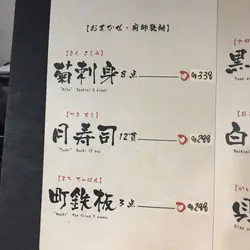 【おまかせ・廚師發辦】
【きく さしみ】
菊刺身 8点 4338
"Kiku" Sashimi 8 kinds
【つき すし】
月寿司 12貫 4298
"Tsuki" Sushi 12 pcs
【まち てっぱん】
町鉄板 3点 4298
"Machi" Pan fried 3 items
黒
白